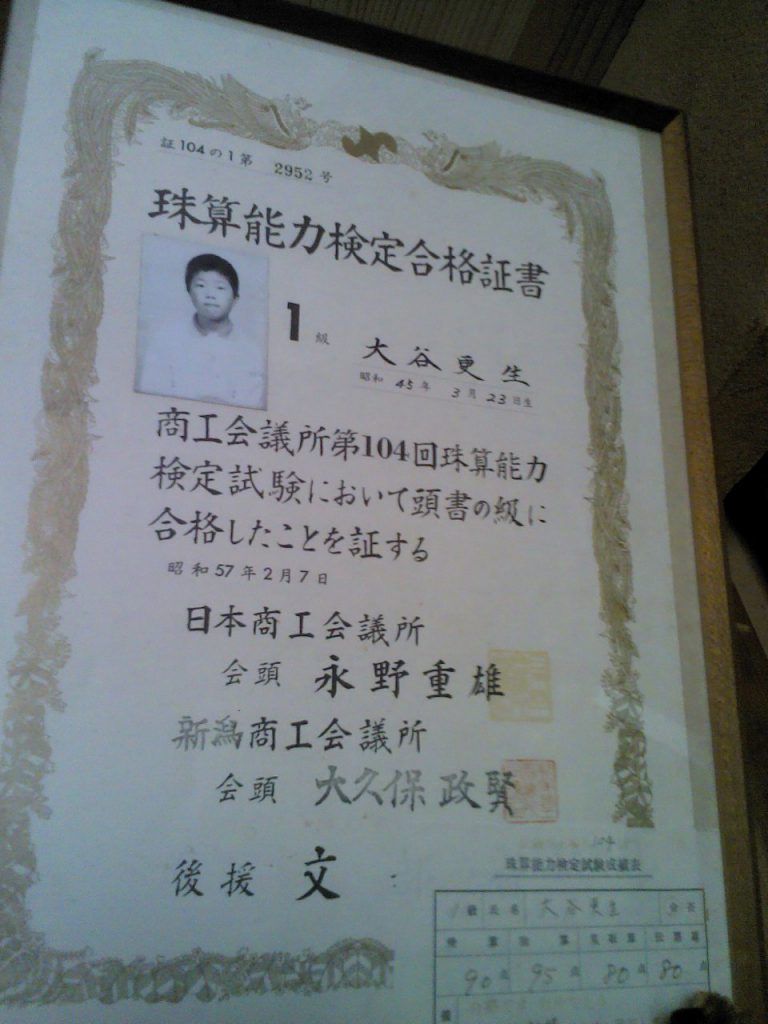 証104の1第 2952号
珠算能力検定合格証書
1級
大谷更生
昭和45年3月23日生
商工会議所第104回珠算能力
検定試験において頭書の級に
合格したことを証する
昭和57年2月7日
日本商工会議所
会頭 永野重雄
新潟商工会議所
会頭 大久保政賢
後援 文
104
珠算能力検定試験成績表
1級 氏名 大谷更生
90点 95点 80点 80点